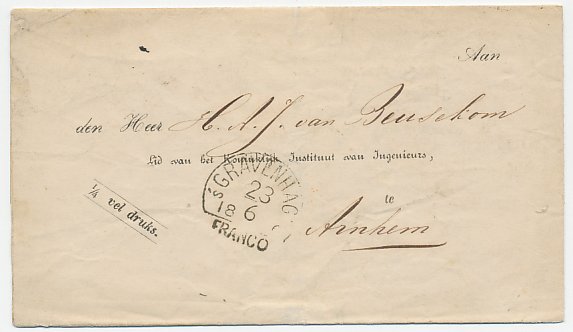 Aan
den Heer H. A. J. van Beusekom
Lid van het Koninklijk Instituut van Ingenieurs,
te
Arnhem
¼ vel druks.
'sGRAVENHAG
23
18 6
FRANCO